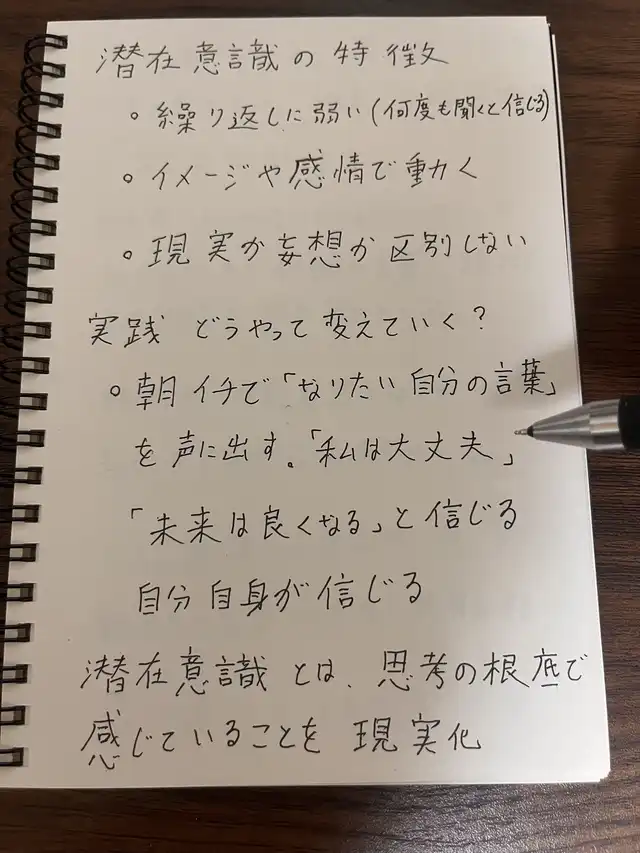 潜在意識の特徴
。繰り返しに弱い(何度も聞くと信じる)
。イメージや感情で動く
。現実か妄想か区別しない
実践 どうやって変えていく?
。朝イチで「なりたい自分の言葉」
を声に出す。「私は大丈夫」
「未来は良くなる」と信じる
自分自身が信じる
潜在意識とは、思考の根底で
感じていることを現実化